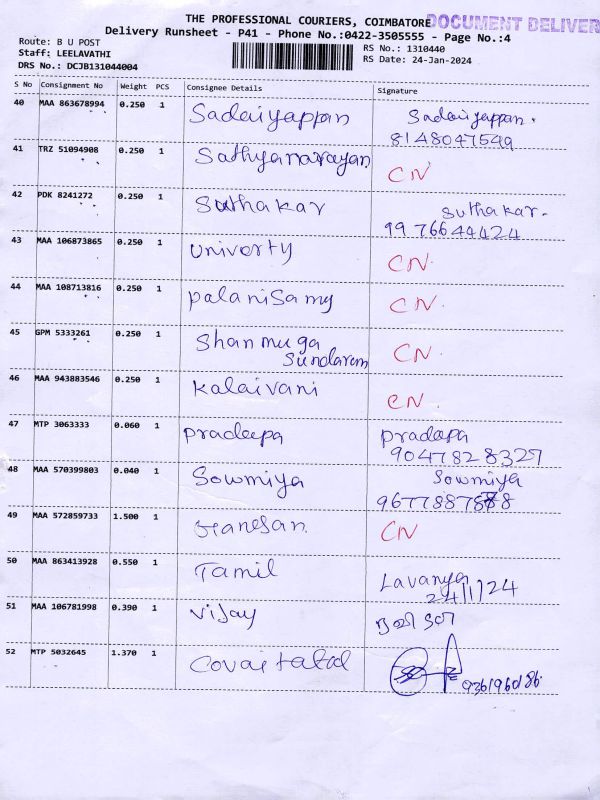 THE PROFESSIONAL COURIERS, COIMBATORE DOCUMENT DELIVER
Delivery Runsheet - P41 - Phone No.:0422-3505555 - Page No.:4
Route: B U POST
Staff: LEELAVATHI
DRS No.: DCJB131044004
RS No.: 1310440
RS Date: 24-Jan-2024
S No Consignment No Weight PCS Consignee Details Signature
40 MAA 863678994 0.250 1 Sadaiyappan Sadaiyappan.
8148047549
41 TRZ 51094908 0.250 1 Sathyanarayan CN
42 PDK 8241272 0.250 1 Suthakar Suthakar.
9976644424
43 MAA 106873865 0.250 1 Univerty CN.
44 MAA 108713816 0.250 1 Palanisamy CN.
45 GPM 5333261 0.250 1 Shanmuga
Sundaram CN.
46 MAA 943883546 0.250 1 Kalaivani CN.
47 MTP 3063333 0.060 1 Pradeepa Pradeepa
9047828327
48 MAA 570399803 0.040 1 Sowmiya Sowmiya
49 MAA 572859733 1.500 1 Ganesan. CN
50 MAA 863413928 0.550 1 Tamil Lavanya
24/1/24
51 MAA 106781998 0.390 1 Vijay
52 MTP 5032645 1.370 1 Covai 9361960186.